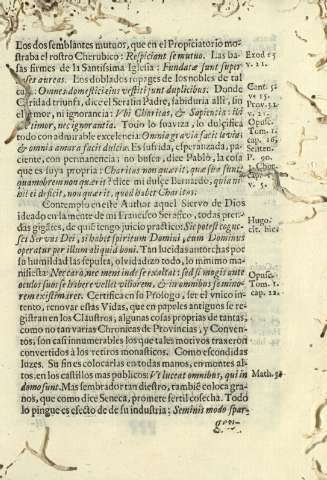 Los dos semblantes mutuos, que en el Propiciatorio mo-
straba el rostro Cherubico: Respiciant se mutuo. Las ba-
sas firmes de la Santissima Iglesia: Fundatæ sunt super
ses aureas. Los doblados ropages de los nobles de tal
casa: Omnes domestici eius vestiti sunt duplicibus. Donde
Caridad triunfa, dice el Serafin Padre, sabiduria alli, sin
temor, ni ignorancia: Vbi Charitas, & Sapientia: ibi
timor, nec ignorantia. Todo lo suaviza, lo dulcifica
todo con admirable excelencia: Omnia gravia facit levia:
& omnia amara facit dulcia. Es sufrida, esperanzada, pa-
ciente, con permanencia; no busca, dice Pablo, la cosa
que es suya propria: Charitas non quærit, quæ sua sunt:
quamobrem non quærit? dice mi dulce Bernardo, quia ni-
hil ei deficit, non quærit, quod habet Charitas.
Contemplo en este Author aquel Siervo de Dios
ideado en la mente de mi Francisco Serafico, todas pren-
das gigantes, de quien tengo juicio practico: Sic potest cog-
sci Servus Dei, si habet spiritum Domini, cum Dominus
operatur per illum aliquid boni. Tan lucidas antorchas por
su humildad las sepulta, olvidadizo todo, lo minimo ma-
nifiesta: Nec caro, nec mens inde se exaltat: sed si magis ante
oculos suos se habere vellet viliorem, & in omnibus se mino-
rem existimaret. Certifica en su Prologo, ser el vnico in-
tento, renovar essas Vidas, que en papeles antiguos se re-
gistran en los Claustros, algunas cosas proprias de tantas,
como no tan varias Chronicas de Provincias, y Conven-
tos, son casi innumerables los que tales motivos traxeron
convertidos à los retiros monasticos. Como escondidas
luzes. Su fin es colocarlas en todas manos, en montes al-
tos, en los castillos mas publicos: Vt luceat omnibus, qui in
domo sunt. Mas sembrador tan diestro, tambiē coloca gra-
nos, que como dice Seneca, promete fertil cosecha. Todo
lo pingue es efecto de de su industria: Seminis modo spar-
gen-
Exod 25
v. 21.
Cant. 5.
v. 15.
Prov. 31.
v. 21.
Opusc.
Tom. 1.
cap. 26.
Senten.
P. 90.
v. 5.
Hugo.
cit. hic:
Opusc.
Tom. 1.
cap. 22.
Math. 5.